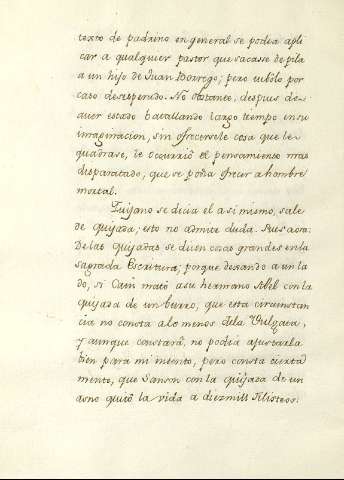 texto de padrino en general se podia apli
car a qualquier pastor que sacasse de pila
a un hijo de Juan Borrego; pero tubolo por
caso desesperado. No obstante, despues de
aver estado batallando largo tiempo en su
imaginacion, sin ofrecersele cosa que le
quadrase, le occurriò el pensamiento mas
disparatado, que se podia ofrecer a hombre
mortal.
Quijano se decia el a si mismo, sale
de quijada; esto no admite duda. Pues aora.
De las quijadas se dicen cosas grandes en la
sagrada Escritura; porque dexando a un la
do, si Cain matò a su hermano Abel con la
quijada de un burro, que esta circunstan
cia no consta a lo menos de la Vulgata,
y aunque constarà, no podia ajustarla
bien para mi intento, pero consta cierta
mente, que Sanson con la quijada de un
asno quitò la vida a diezmill filisteos: